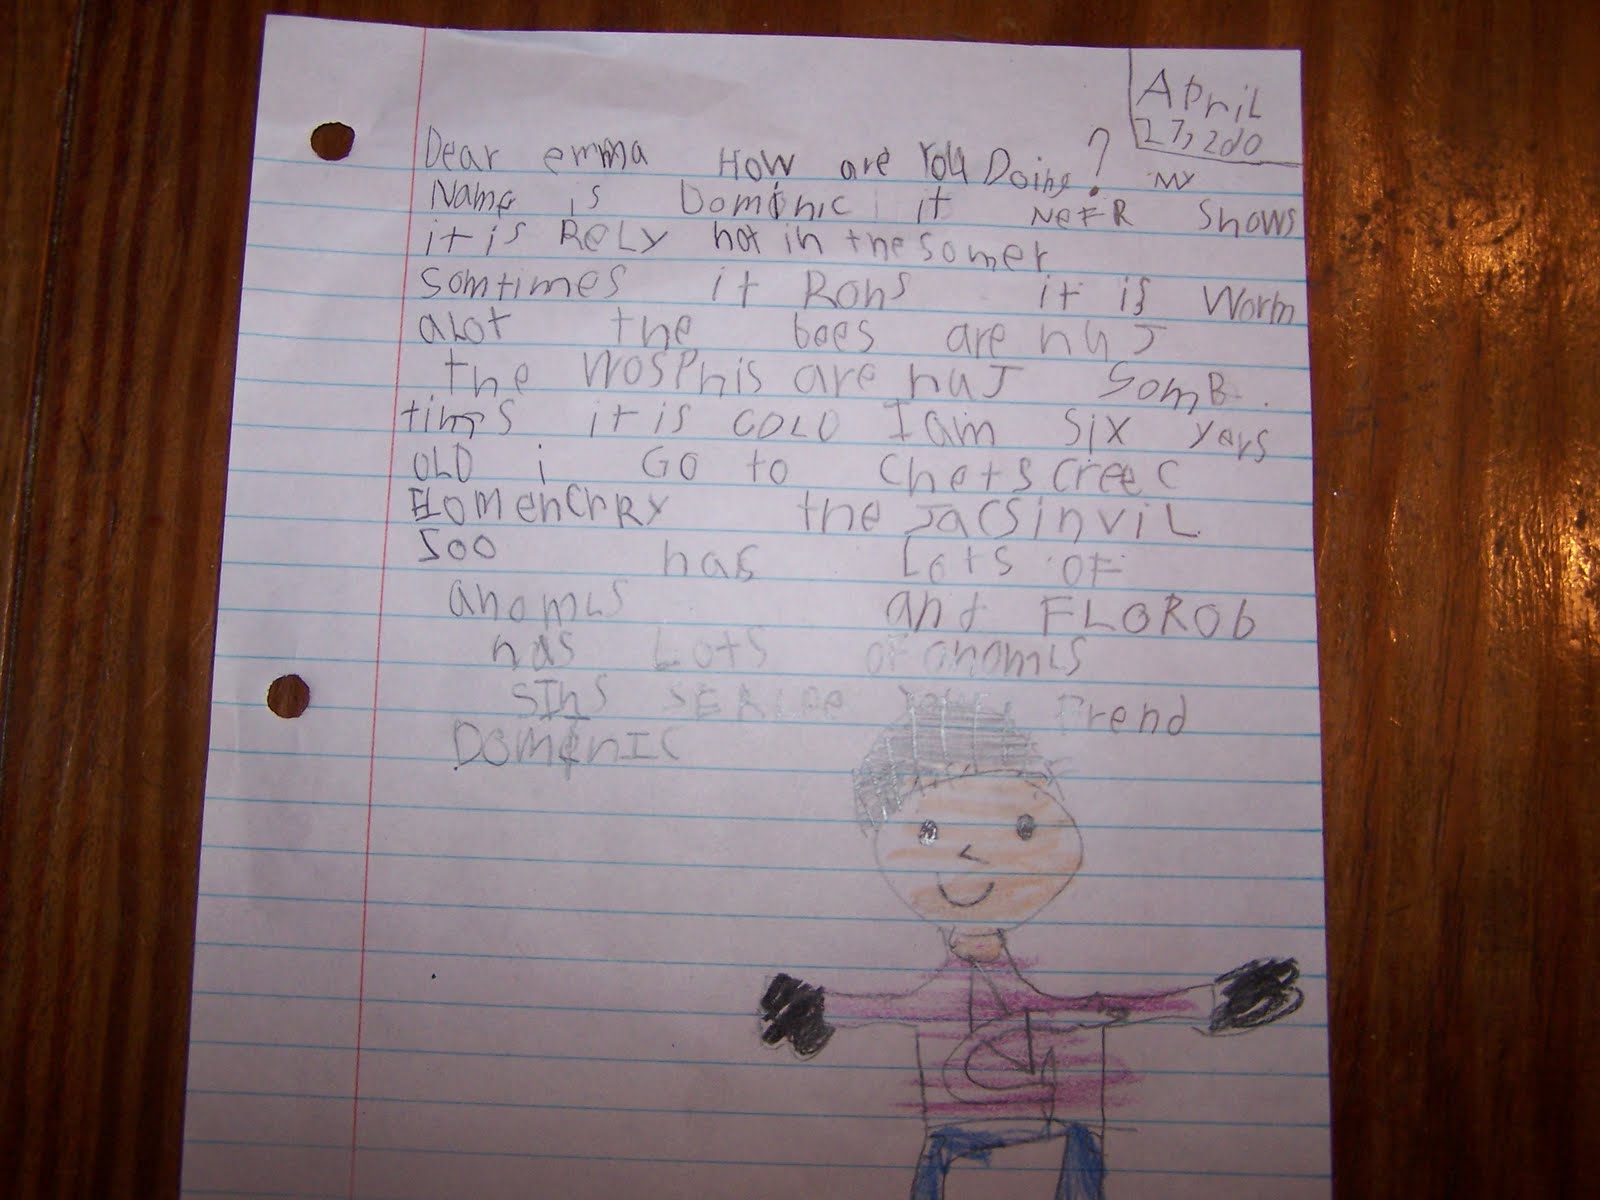 April
27, 2010
Dear emma How are You Doing? My
Name is Dominic it NEFR Shows
it is RELY hot in the somer
somtimes it Rans it is Worm
aLot the bees are huJ
the WosPhis are huJ SomB
tims it is COLD I am Six yers
OLD i Go to Chets creec
ELomenchRy the JacsinviL
Soo has Lots of
anomLs and FLOROb
has Lots of anomLs
SINS SERLee Your Frend
DominIC